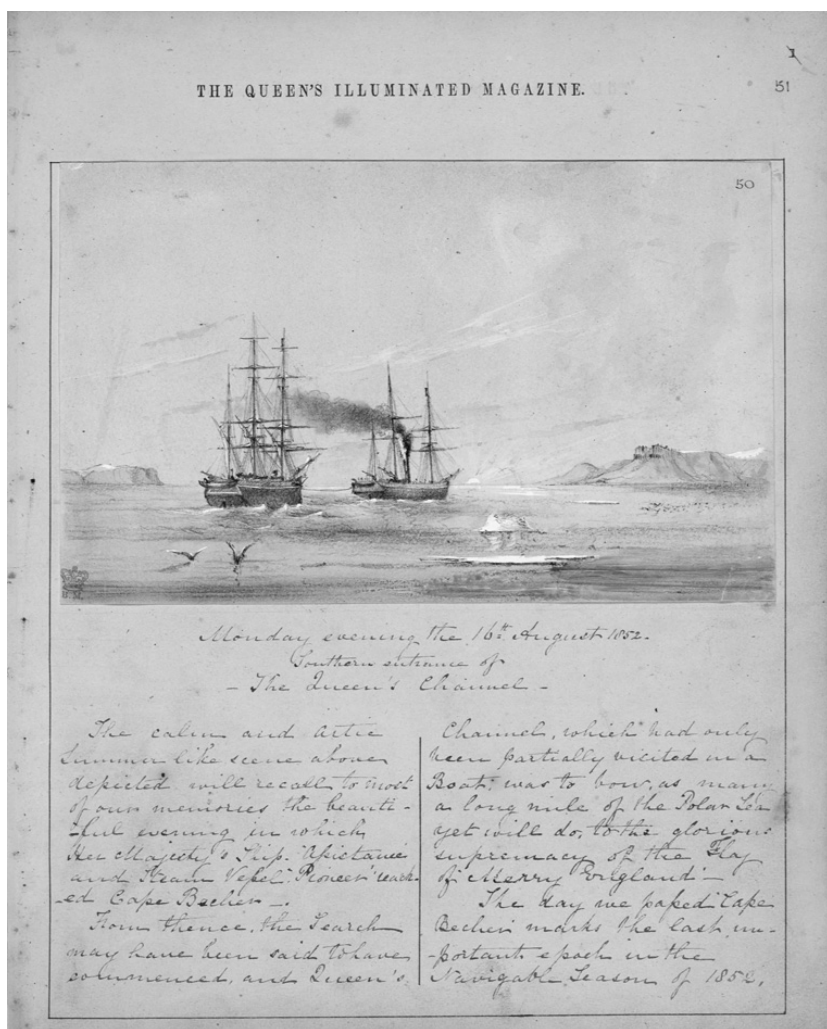 1
THE QUEEN'S ILLUMINATED MAGAZINE.
51
50
Monday evening the 16th August 1852.
Southern entrance of
- The Queen's Channel -
The calm and Artic
Summer like scene above
depicted will recall to most
of our memories the beauti-
-ful evening in which
Her Majesty's Ship "Assistance
and Steam Vessel "Pioneer" reach-
-ed Cape Becher -.
From thence, the Search
may have been said to have
commenced, and Queen's
Channel, which had only
been partially visited in a
Boat; was to bow, as many
a long mile of the Polar Sea
yet will do, to the glorious
supremacy of the Flag
of "Merry England" -
The day we passed Cape
Becher marks the last im-
-portant epoch in the
Navigable Season of 1852.